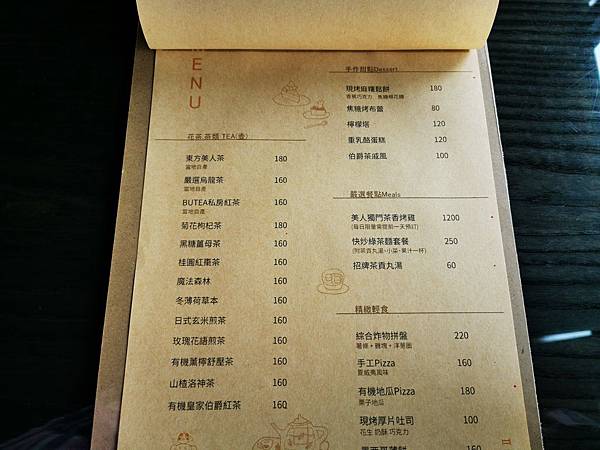 ENU
花茶.茶類 TEA(壺)
東方美人茶 180
當地自產
嚴選烏龍茶 160
當地自產
BUTEA私房紅茶 160
當地自產
菊花枸杞茶 180
黑糖薑母茶 160
桂圓紅棗茶 160
魔法森林 160
冬薄荷草本 160
日式玄米煎茶 160
玫瑰花語煎茶 160
有機薰檸舒壓茶 160
山楂洛神茶 160
有機皇家伯爵紅茶 160
手作甜點Dessert
現烤麻糬鬆餅 180
焦糖烤布蕾 80
檸檬塔 120
重乳酪蛋糕 120
伯爵茶戚風 100
嚴選餐點Meals
美人獨門茶香烤雞 1200
(每日限量需提前一天預訂)
快炒綠茶麵套餐 250
(附茶貢丸湯+小菜+果汁一杯)
招牌茶貢丸湯 60
精緻輕食
綜合炸物拼盤 220
薯條＋雞塊＋洋蔥圈
手工Pizza 160
夏威夷風味
有機地瓜Pizza 180
栗子地瓜
現烤厚片吐司 100
花生 奶酥 巧克力
160